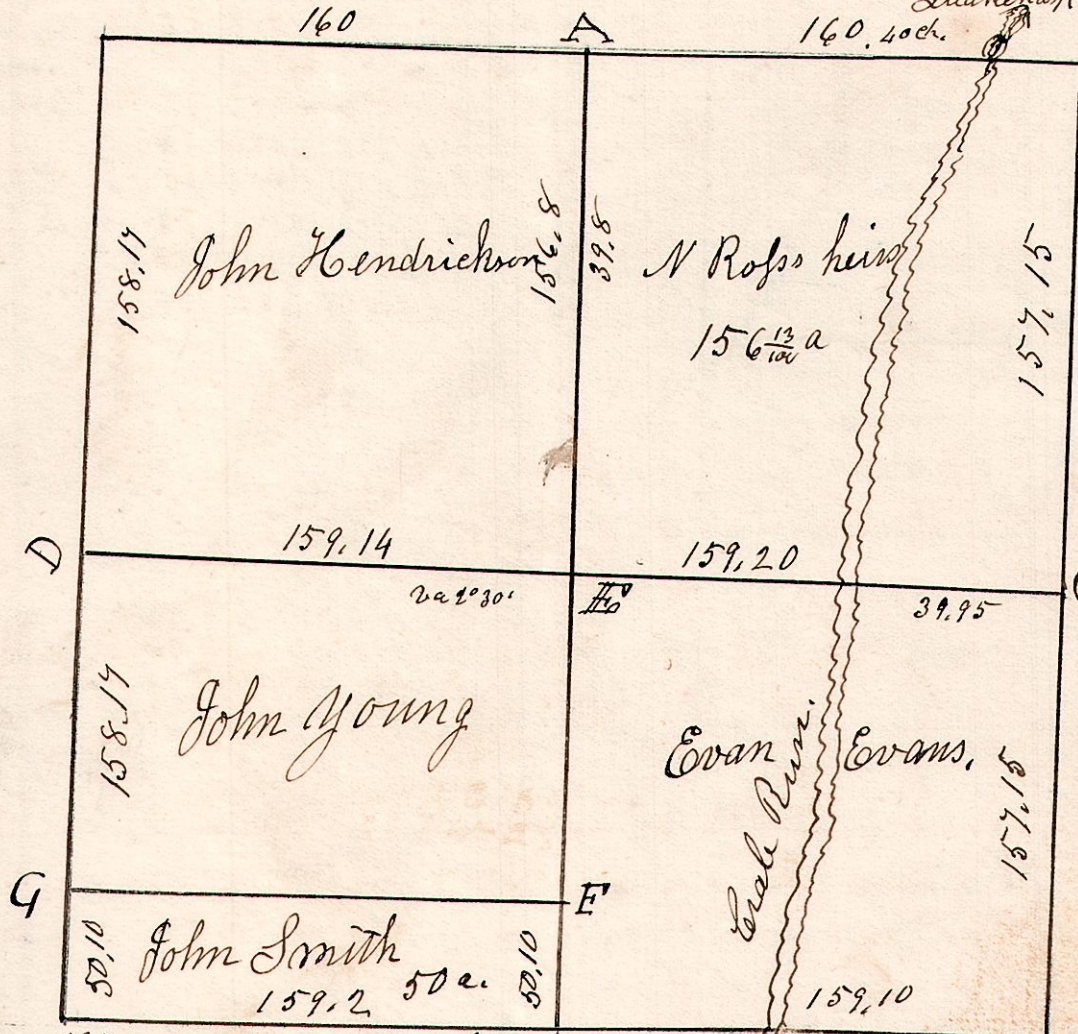 160
A
160. 40ch.
158.17
John Hendrickson
156.8
39.8
N Ross heirs
156 13/100 a
157.15
D
159.14
159.20
va 2°30'
E
39.95
158.17
John Young
Evan Evans.
Crab Run.
157.15
G
F
50.10
John Smith
50 a.
50.10
159.2
159.10